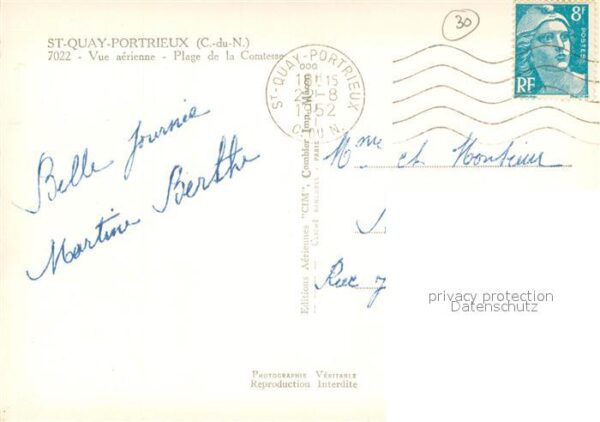 ST-QUAY-PORTRIEUX (C.-du-N.)
7022 - Vue aérienne - Plage de la Comtesse
30
8F
POSTES
RF
ST-QUAY-PORTRIEUX
1952
C. DU N.
Belle Journée
Martine Berthe
Mme et Monsieur
Rue
Editions Aériennes "CIM", Combier Imp. Mâcon
privacy protection
Datenschutz
PHOTOGRAPHIE VÉRITABLE
Reproduction Interdite